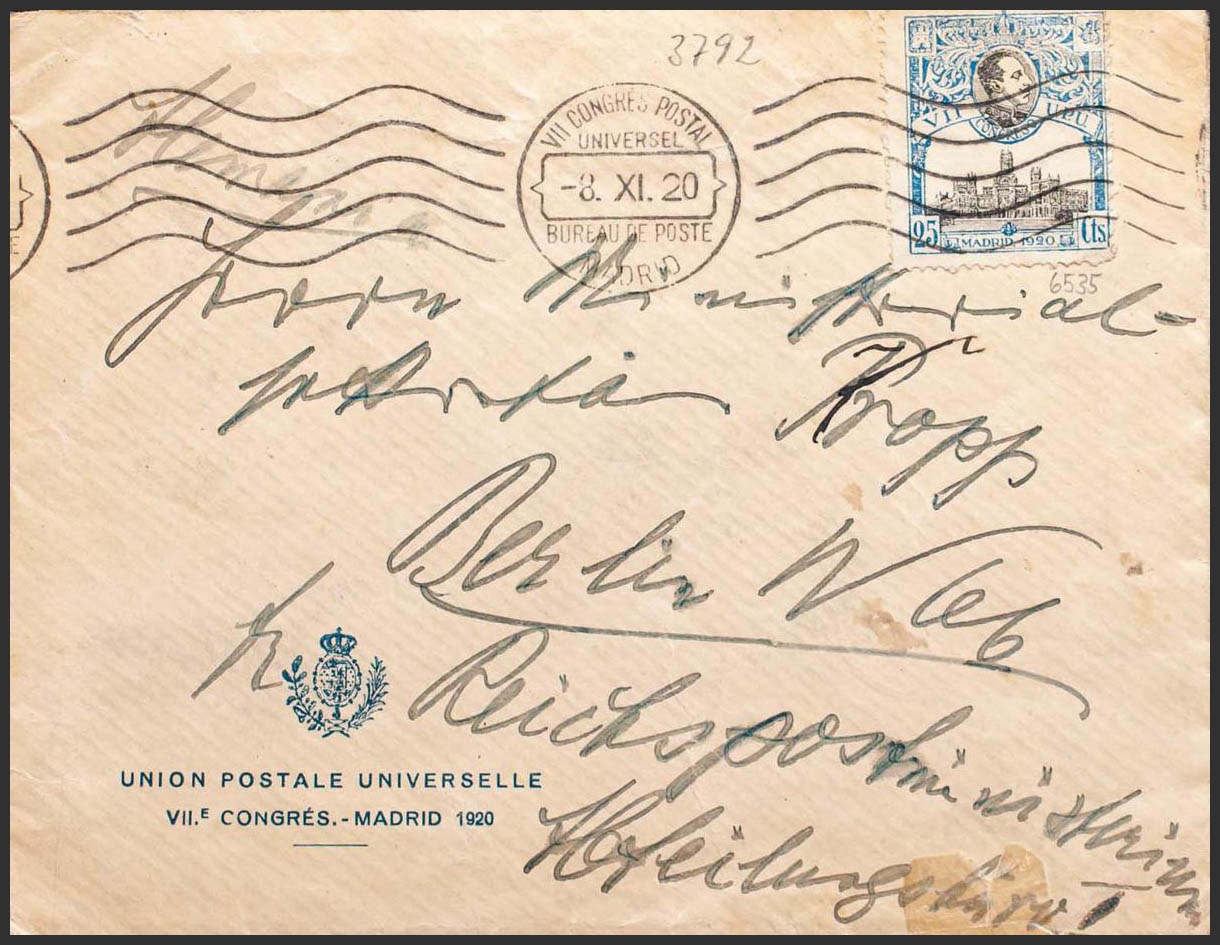 3792
VII CONGRÈS POSTAL
UNIVERSEL
-8. XI. 20
BUREAU DE POSTE
MADRID
VII CONGRESO UPU
25 MADRID 1920 Cts
6535
Alemania
Herrn Ministerial-
sekretär Kropp
Berlin W
Reichspostministerium
Abteilungsbüro I
UNION POSTALE UNIVERSELLE
VII.E CONGRÉS.-MADRID 1920